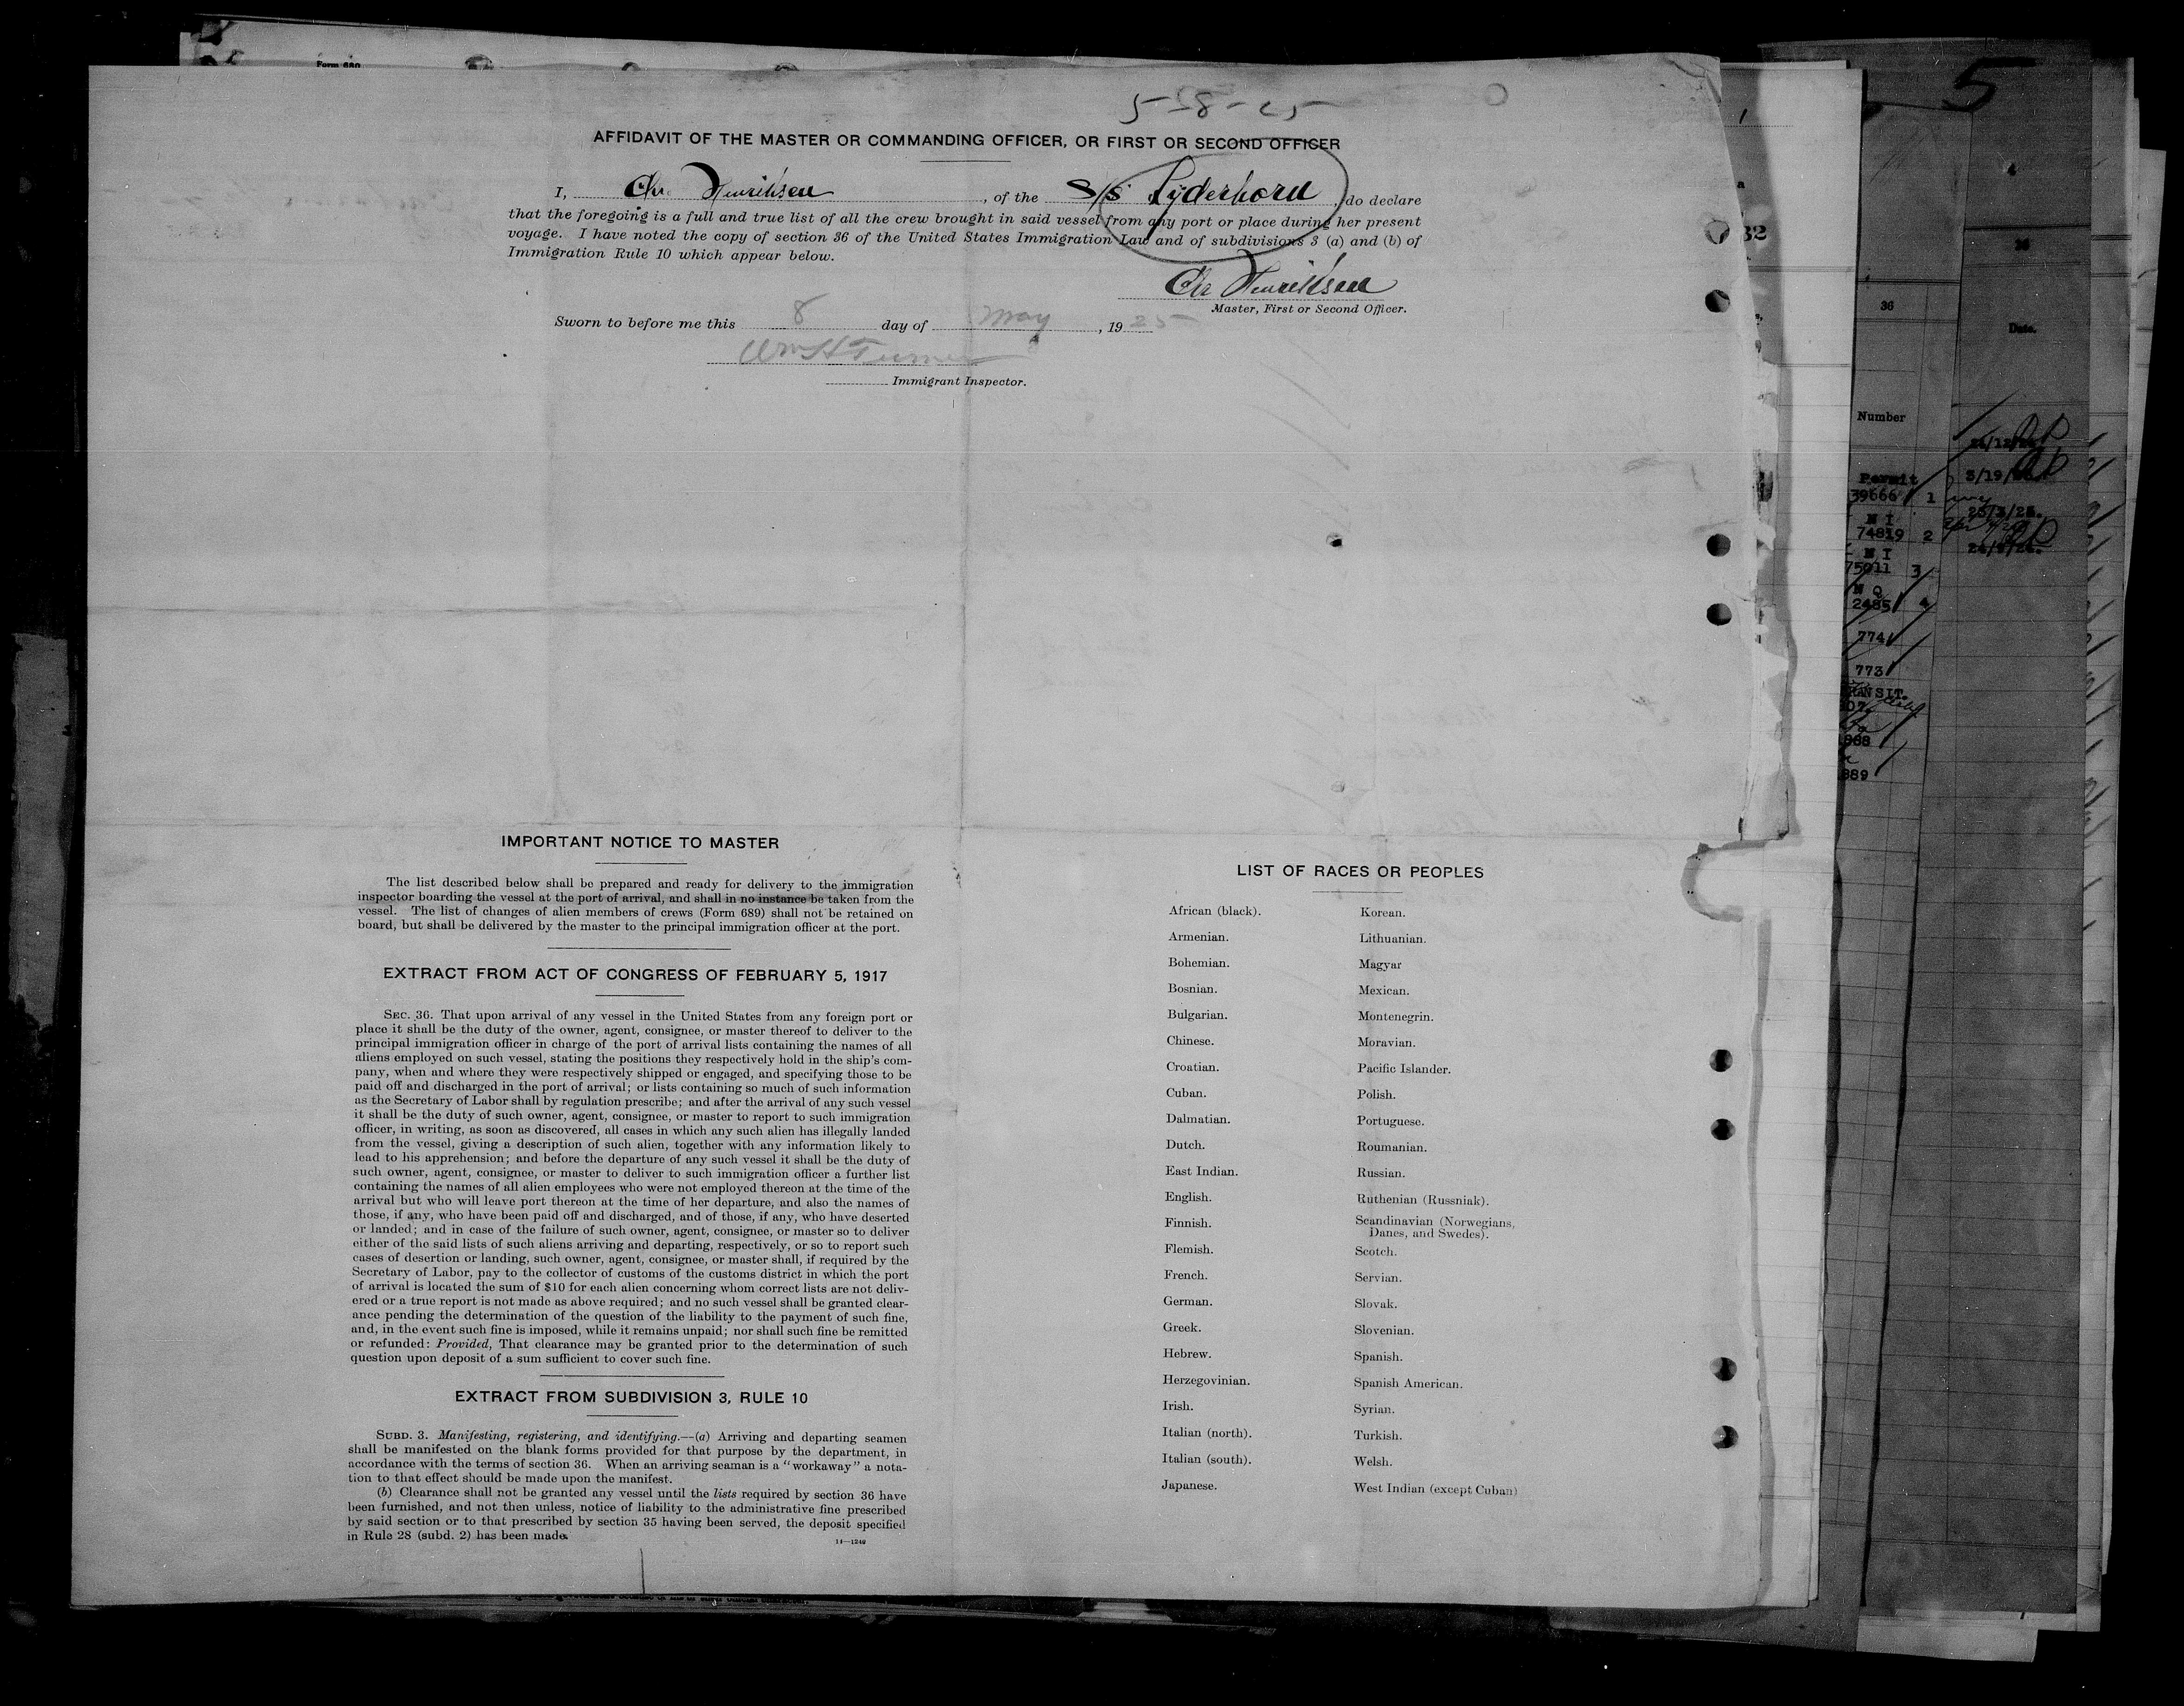 Form 689
5
5-8-25
AFFIDAVIT OF THE MASTER OR COMMANDING OFFICER, OR FIRST OR SECOND OFFICER
I, Chr. Henriksen, of the S/S Ryderhorn, do declare
that the foregoing is a full and true list of all the crew brought in said vessel from any port or place during her present
voyage. I have noted the copy of section 36 of the United States Immigration Law and of subdivisions 3 (a) and (b) of
Immigration Rule 10 which appear below.
Chr Henriksen
Master, First or Second Officer.
Sworn to before me this 8 day of May, 1925
Wm H Turner
Immigrant Inspector.
IMPORTANT NOTICE TO MASTER
The list described below shall be prepared and ready for delivery to the immigration
inspector boarding the vessel at the port of arrival, and shall in no instance be taken from the
vessel. The list of changes of alien members of crews (Form 689) shall not be retained on
board, but shall be delivered by the master to the principal immigration officer at the port.
EXTRACT FROM ACT OF CONGRESS OF FEBRUARY 5, 1917
SEC. 36. That upon arrival of any vessel in the United States from any foreign port or
place it shall be the duty of the owner, agent, consignee, or master thereof to deliver to the
principal immigration officer in charge of the port of arrival lists containing the names of all
aliens employed on such vessel, stating the positions they respectively hold in the ship's com-
pany, when and where they were respectively shipped or engaged, and specifying those to be
paid off and discharged in the port of arrival; or lists containing so much of such information
as the Secretary of Labor shall by regulation prescribe; and after the arrival of any such vessel
it shall be the duty of such owner, agent, consignee, or master to report to such immigration
officer, in writing, as soon as discovered, all cases in which any such alien has illegally landed
from the vessel, giving a description of such alien, together with any information likely to
lead to his apprehension; and before the departure of any such vessel it shall be the duty of
such owner, agent, consignee, or master to deliver to such immigration officer a further list
containing the names of all alien employees who were not employed thereon at the time of the
arrival but who will leave port thereon at the time of her departure, and also the names of
those, if any, who have been paid off and discharged, and of those, if any, who have deserted
or landed; and in case of the failure of such owner, agent, consignee, or master so to deliver
either of the said lists of such aliens arriving and departing, respectively, or so to report such
cases of desertion or landing, such owner, agent, consignee, or master shall, if required by the
Secretary of Labor, pay to the collector of customs of the customs district in which the port
of arrival is located the sum of $10 for each alien concerning whom correct lists are not deliv-
ered or a true report is not made as above required; and no such vessel shall be granted clear-
ance pending the determination of the question of the liability to the payment of such fine,
and, in the event such fine is imposed, while it remains unpaid; nor shall such fine be remitted
or refunded: Provided, That clearance may be granted prior to the determination of such
question upon deposit of a sum sufficient to cover such fine.
EXTRACT FROM SUBDIVISION 3, RULE 10
SUBD. 3. Manifesting, registering, and identifying.—(a) Arriving and departing seamen
shall be manifested on the blank forms provided for that purpose by the department, in
accordance with the terms of section 36. When an arriving seaman is a "workaway" a nota-
tion to that effect should be made upon the manifest.
(b) Clearance shall not be granted any vessel until the lists required by section 36 have
been furnished, and not then unless, notice of liability to the administrative fine prescribed
by said section or to that prescribed by section 35 having been served, the deposit specified
in Rule 28 (subd. 2) has been made.
14—1240
LIST OF RACES OR PEOPLES
African (black).
Armenian.
Bohemian.
Bosnian.
Bulgarian.
Chinese.
Croatian.
Cuban.
Dalmatian.
Dutch.
East Indian.
English.
Finnish.
Flemish.
French.
German.
Greek.
Hebrew.
Herzegovinian.
Irish.
Italian (north).
Italian (south).
Japanese.
Korean.
Lithuanian.
Magyar
Mexican.
Montenegrin.
Moravian.
Pacific Islander.
Polish.
Portuguese.
Roumanian.
Russian.
Ruthenian (Russniak).
Scandinavian (Norwegians,
Danes, and Swedes).
Scotch.
Servian.
Slovak.
Slovenian.
Spanish.
Spanish American.
Syrian.
Turkish.
Welsh.
West Indian (except Cuban)
32
36
Date.
Number
Permit
39666 1
N I
74819 2
N I
75011 3
N Q
2485 4
774
773